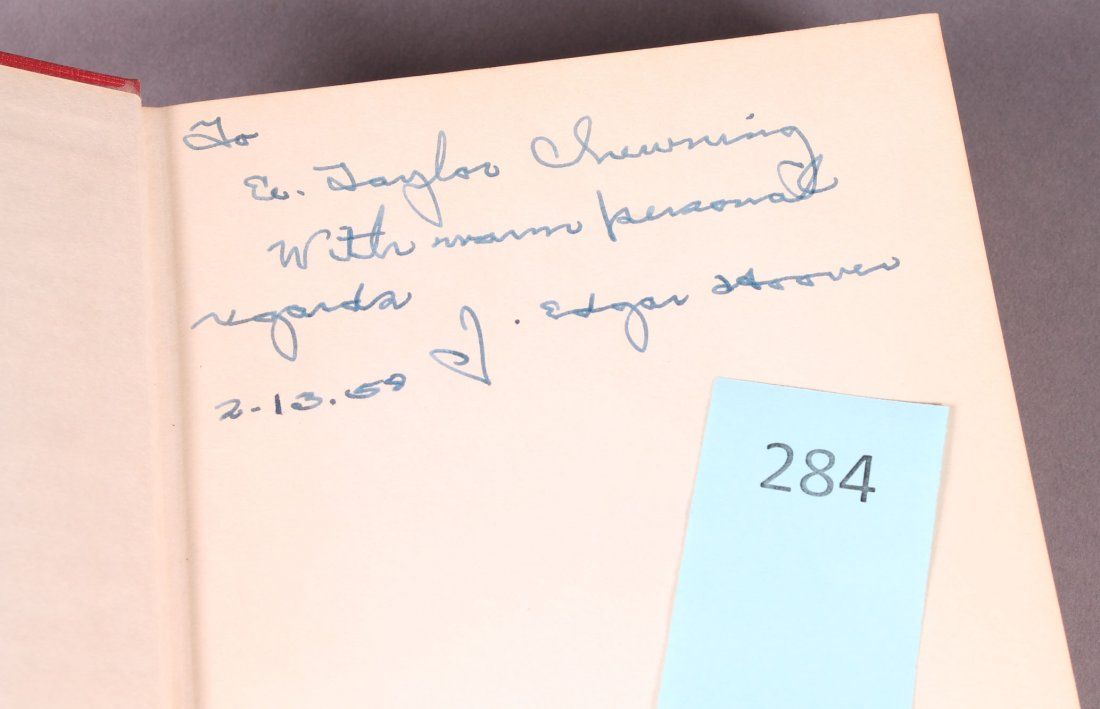 To
E. Taylor Chewning
With warm personal
regards
J. Edgar Hoover
2-13.59
284